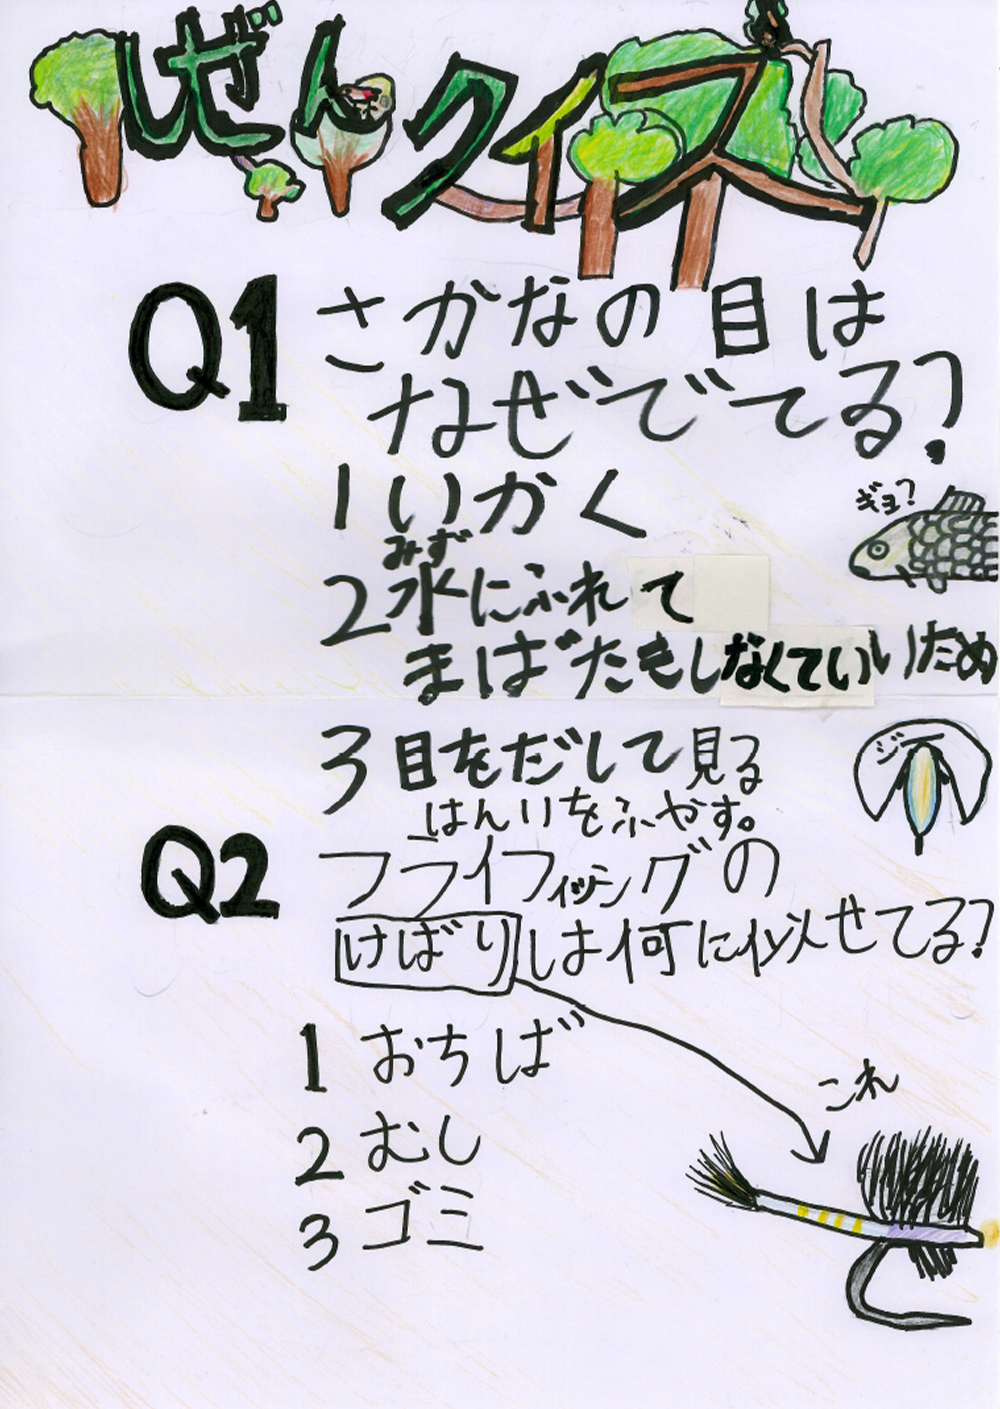 しぜんクイズ
Q1 さかなの目は
なぜでてる?
1 いかく
ギョ?
みず
2 水にふれて
まばたもしなくていいため
3 目をだして見る
はんいをふやす。
ジー
Q2 フライフィッシングの
けばりは何に似せてる?
1 おちば
これ
2 むし
3 ゴミ